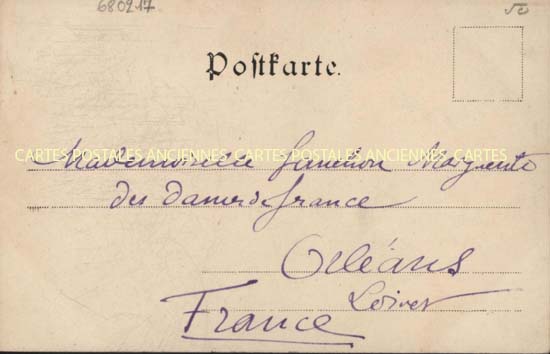 680217
Postkarte.
CARTES POSTALES ANCIENNES CARTES POSTALES ANCIENNES CARTES
Mademoiselle Marguerite
des Dames de france
Orléans
Loiret
France